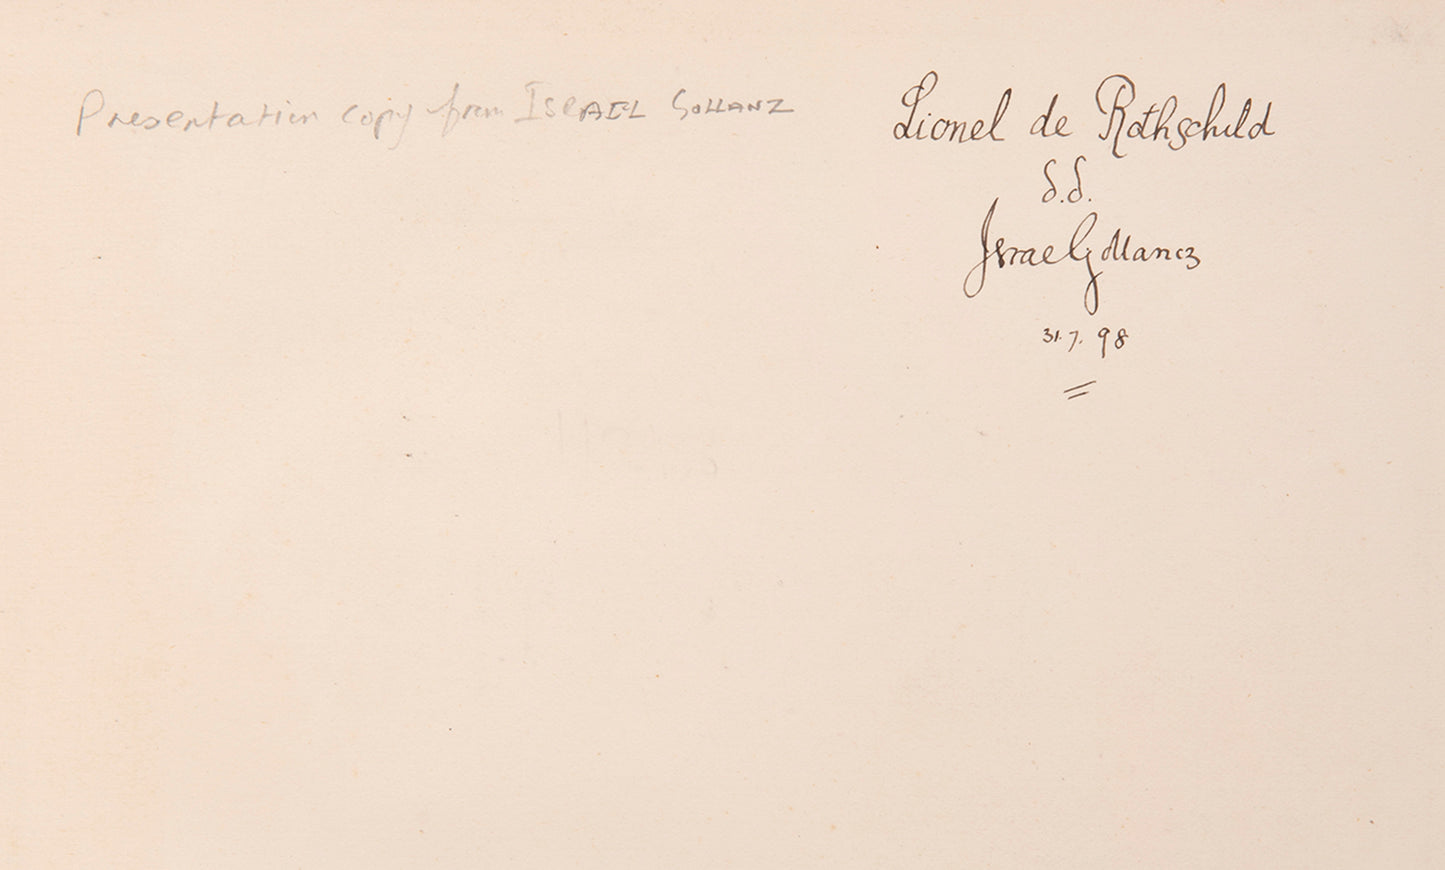 Presentation copy from ISRAEL GOLLANZ
Lionel de Rothschild
d.d.
Israel Gollancz
31.7.98